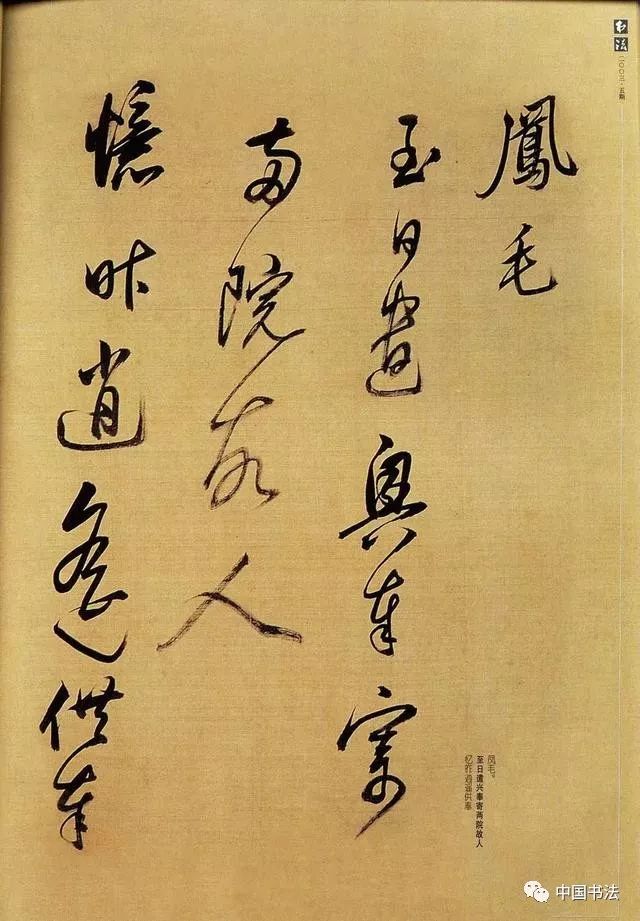 书法
二〇〇三·五期
鳳毛
至日遣興奉寄
兩院故人
憶昨逍遙供奉
凤毛。
至日遣兴奉寄两院故人
忆昨逍遥供奉
中国书法